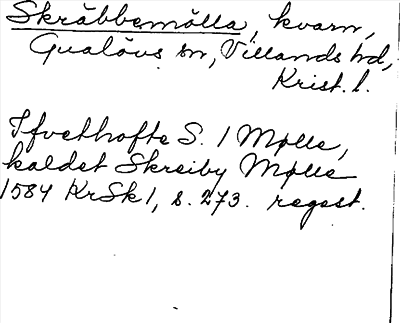 Skräbbemölla, kvarn,
Gualövs sn, Villands hd,
Krist. l.
Ifvethofte S. 1 Mølle,
kaldet Skreiby Mølle
1584 KrSk 1, s. 273. regest.